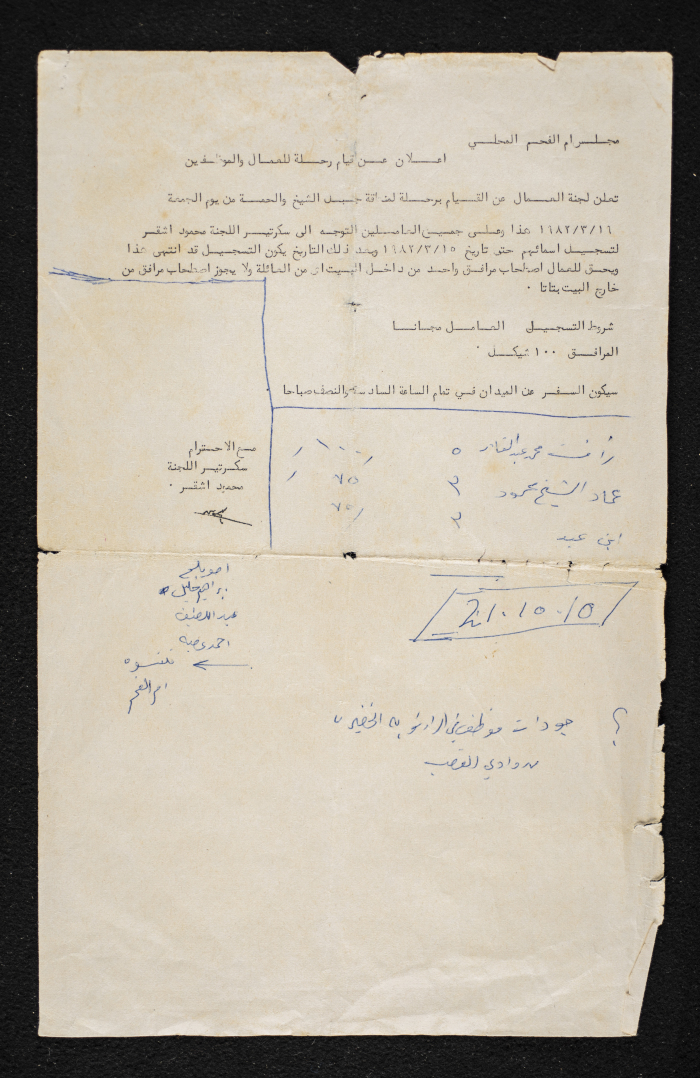 مجلس ام الفحم المحلي
اعلان عن قيام رحلة للعمال والموظفين
تعلن لجنة العمال عن القيام برحلة لمنطقة جبل الشيخ والحمة من يوم الجمعة
١٩٨٢/٣/١٩ هذا وعلى جميع العاملين التوجه الى سكرتير اللجنة محمود اشقر
لتسجيل اسمائهم حتى تاريخ ١٩٨٢/٣/١٥ وبعد ذلك التاريخ يكون التسجيل قد انتهى هذا
ويحق للعمال اصطحاب مرافق واحد من داخل البيت اي من العائلة ولا يجوز اصطحاب مرافق من
خارج البيت بتاتا .
شروط التسجيل العامل مجانا
المرافق ١٠٠ شيكل .
سيكون السفر عن الميدان في تمام الساعة السادسة والنصف صباحا
مع الاحترام
سكرتير اللجنة
محمود اشقر .
رأفت محمد عبد القادر ٥ ١٠٠
عماد الشيخ محمود ٣ ٧٥
ابن عبد ٣ ٧٥
ابراهيم خليل
عبد اللطيف
احمد
قلنسوه
ام الفحم
٢١٠١٥٠١٥
؟ جودات موظف في
وادي القصب